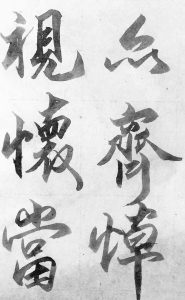 齊悼
視懷當